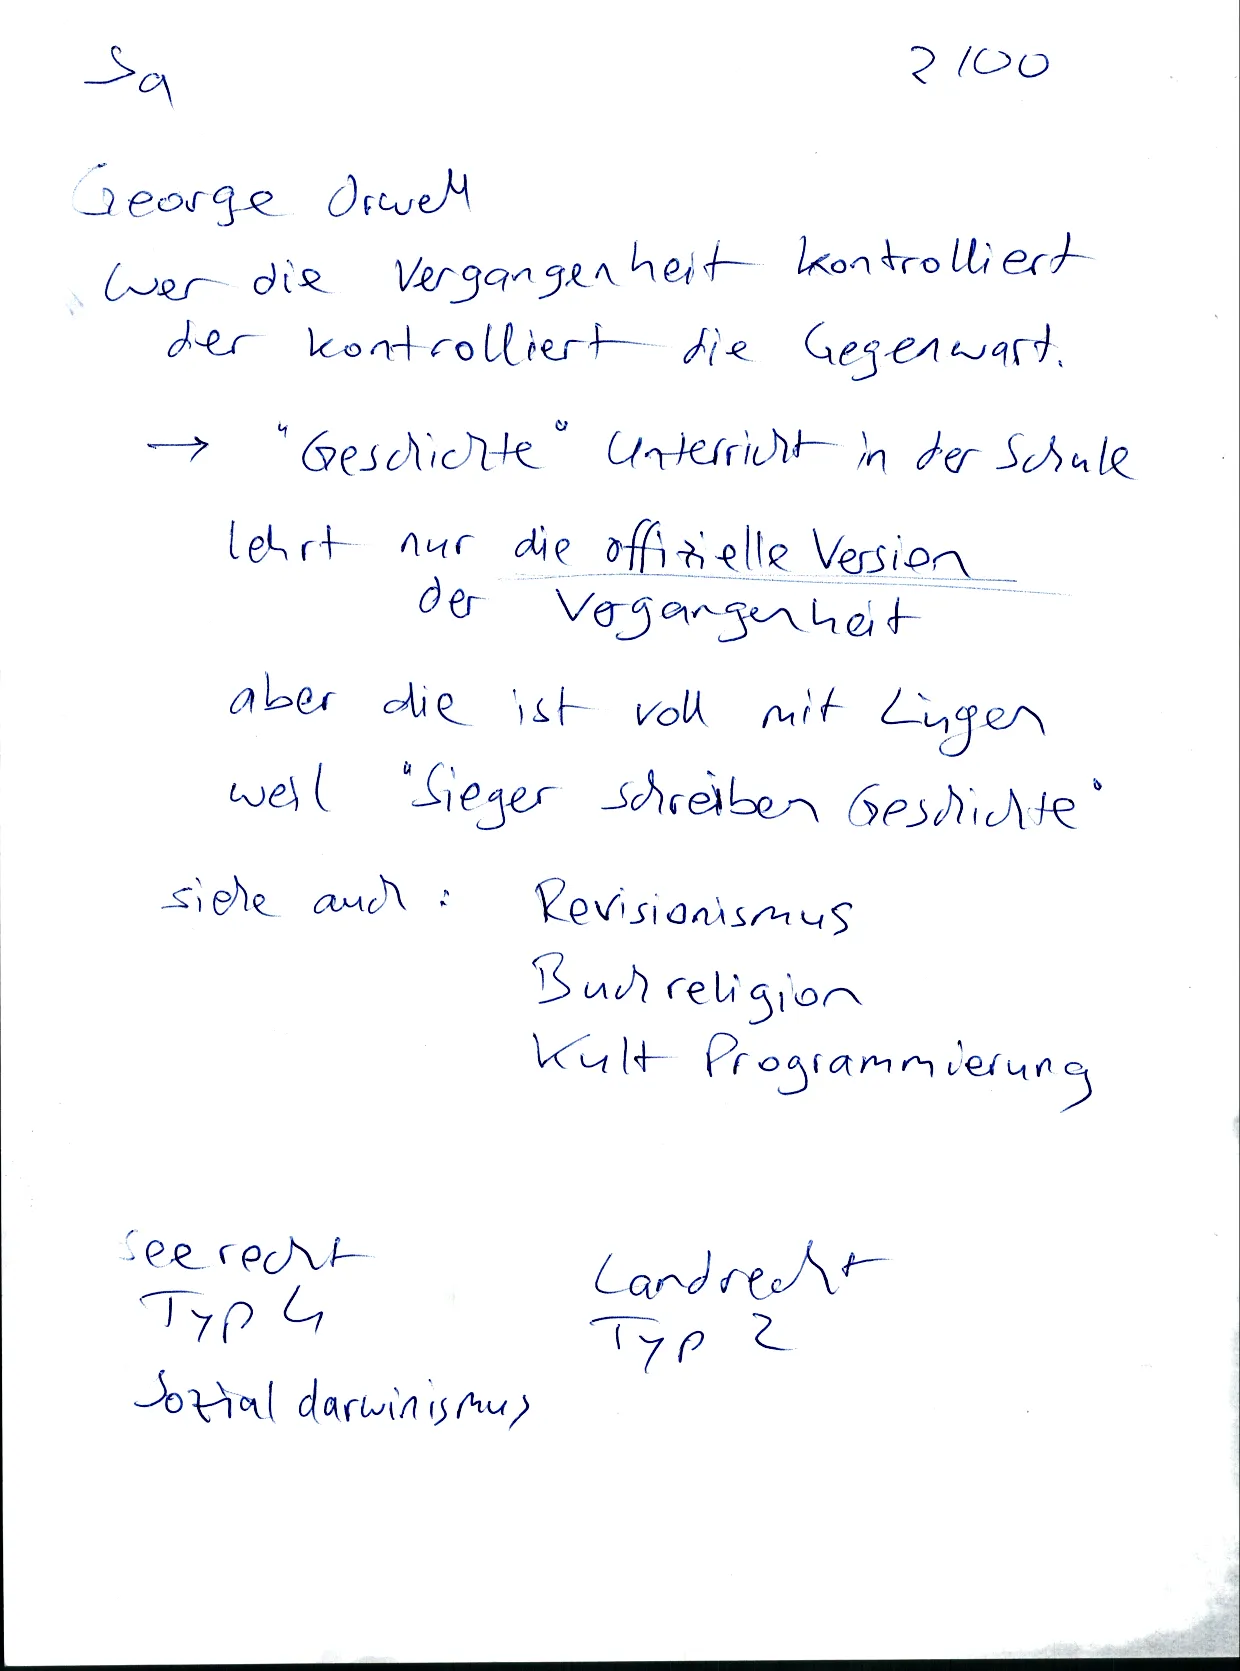 Sa 2100
George Orwell
wer die Vergangenheit kontrolliert
der kontrolliert die Gegenwart.
→ "Geschichte" Unterricht in der Schule
lehrt nur die offizielle Version
der Vergangenheit
aber die ist voll mit Lügen
weil "Sieger schreiben Geschichte"
siehe auch : Revisionismus
Buchreligion
Kult Programmierung
Seerecht Landrecht
Typ 4 Typ 2
Sozialdarwinismus